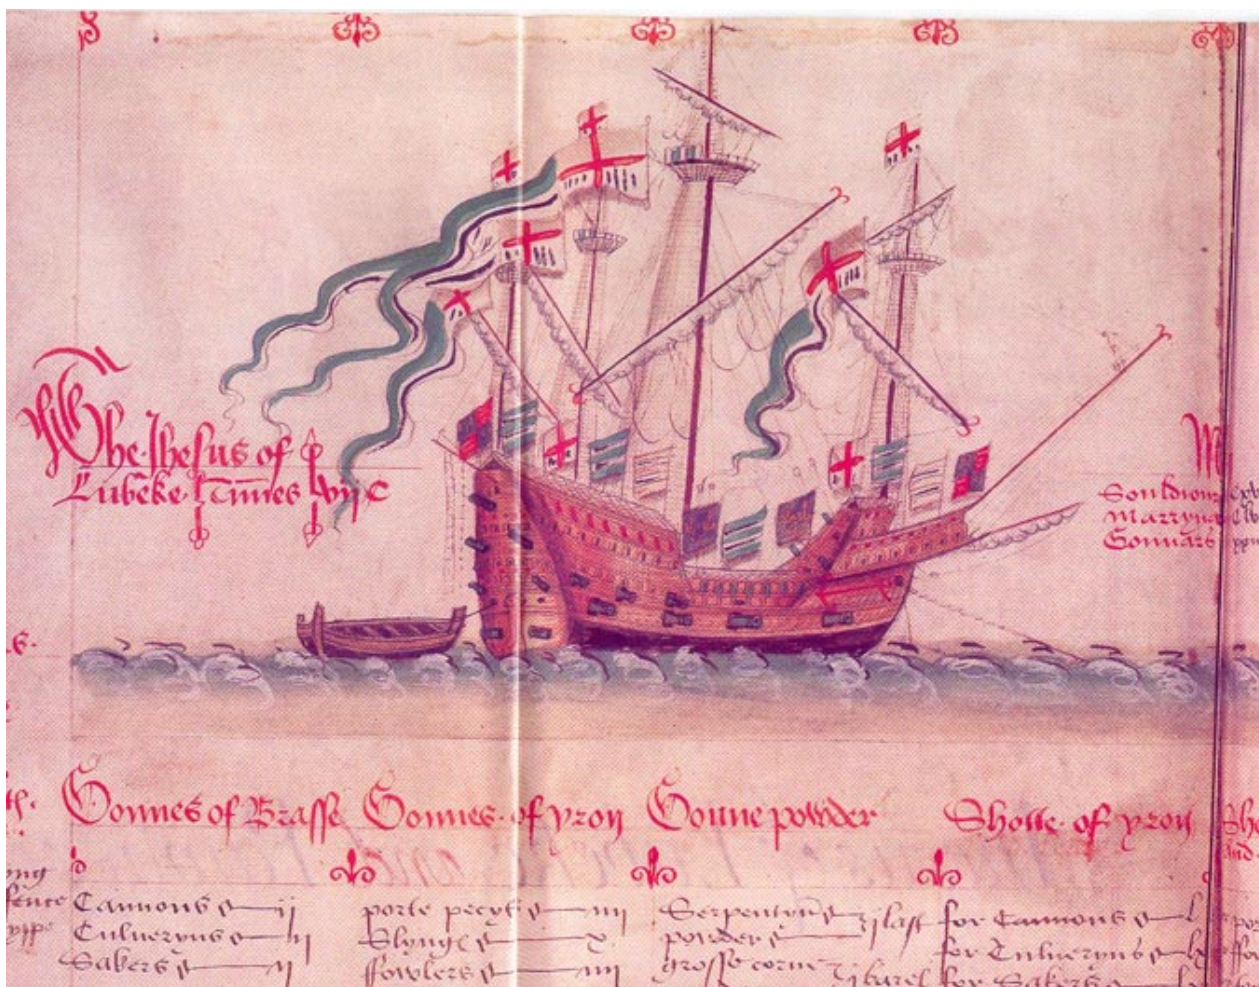 The Jhesus of
Lubeke Tunnes vij C
Souldiours
Marryna
Gonnars
Gonnes of Brasse
Gonnes of yron
Gonnepowder
Shotte of yron
Cannons ij
Culueryns ij
Sakers ij
porte pecys iiij
Slyngs x
ffowlers iiij
Serpentyn
powder ij last
grosse corne
ij barel
for Cannons
for Culueryns
for Sakers